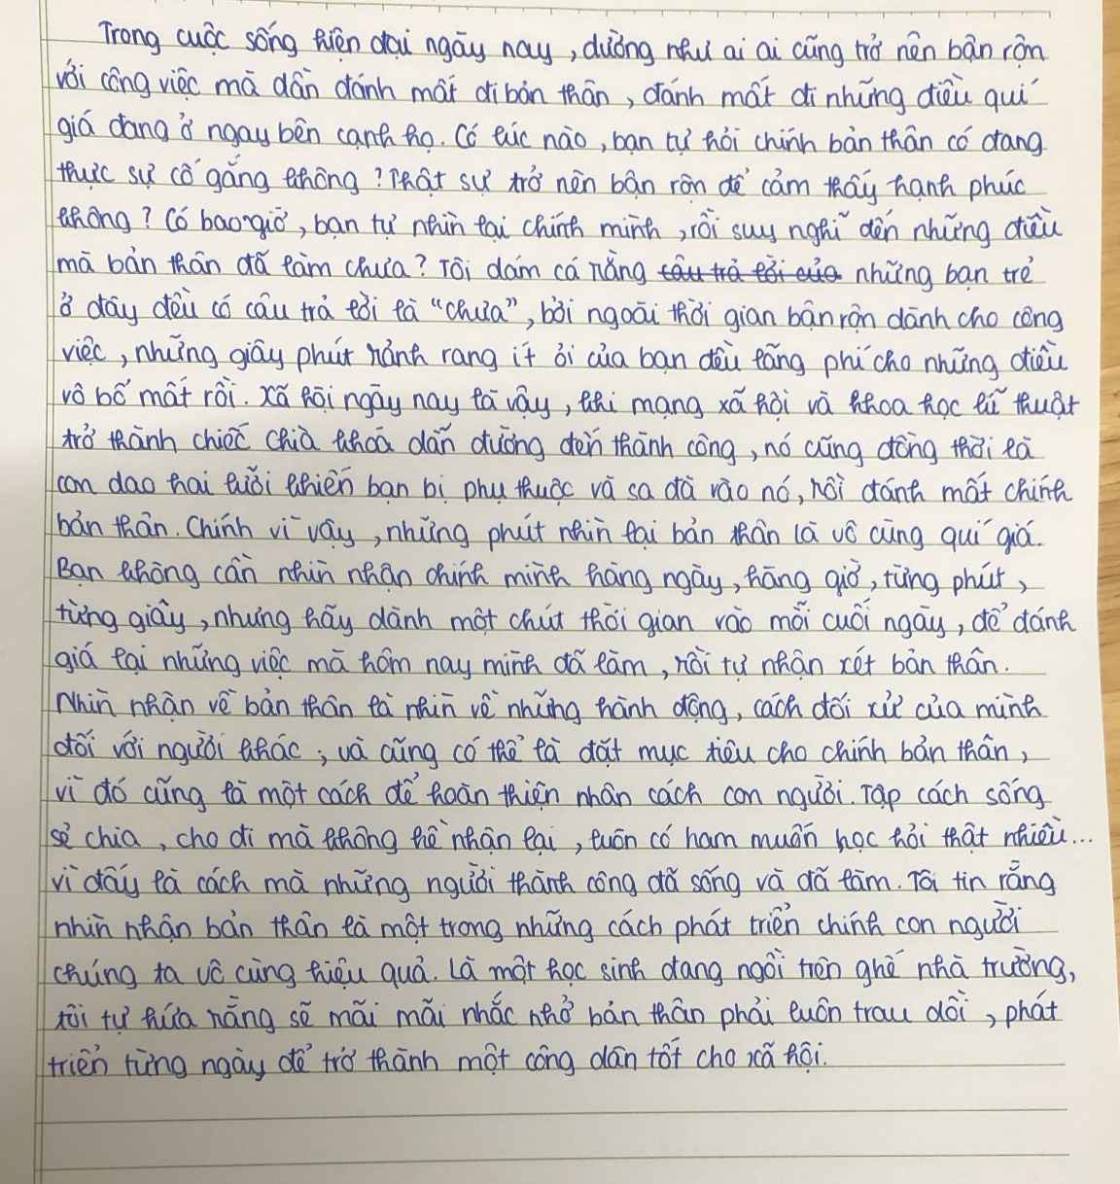 Trong cuộc sống hiện đại ngày nay, dường như ai ai cũng trở nên bận rộn
với công việc mà dần đánh mất đi bản thân, đánh mất đi những điều quí
giá đang ở ngay bên cạnh họ. Có lúc nào, bạn tự hỏi chính bản thân có đang
thực sự cố gắng không? Thật sự trở nên bận rộn để cảm thấy hạnh phúc
không? Có bao giờ, bạn tự nhìn lại chính mình, rồi suy nghĩ đến những điều
mà bản thân đã làm chưa? Tôi dám cá rằng câu trả lời của những bạn trẻ
ở đây đều có câu trả lời là "chưa", bởi ngoài thời gian bận rộn dành cho công
việc, những giây phút rảnh rang ít ỏi của bạn đều lãng phí cho những điều
vô bổ mất rồi. Xã hội ngày nay là vậy, khi mạng xã hội và khoa học kĩ thuật
trở thành chiếc chìa khoá dẫn đường đến thành công, nó cũng đồng thời là
con dao hai lưỡi khiến bạn bị phụ thuộc và sa đà vào nó, rồi đánh mất chính
bản thân. Chính vì vậy, những phút nhìn lại bản thân là vô cùng quí giá.
Bạn không cần nhìn nhận chính mình hàng ngày, hàng giờ, từng phút,
từng giây, nhưng hãy dành một chút thời gian vào mỗi cuối ngày, để đánh
giá lại những việc mà hôm nay mình đã làm, rồi tự nhận xét bản thân.
Nhìn nhận về bản thân là nhìn về những hành động, cách đối xử của mình
đối với người khác; và cũng có thể là đặt mục tiêu cho chính bản thân,
vì đó cũng là một cách để hoàn thiện nhân cách con người. Tập cách sống
sẻ chia, cho đi mà không hề nhận lại, luôn có ham muốn học hỏi thật nhiều...
vì đấy là cách mà những người thành công đã sống và đã làm. Tôi tin rằng
nhìn nhận bản thân là một trong những cách phát triển chính con người
chúng ta vô cùng hiệu quả. Là một học sinh đang ngồi trên ghế nhà trường,
tôi tự hứa rằng sẽ mãi mãi nhắc nhở bản thân phải luôn trau dồi, phát
triển từng ngày để trở thành một công dân tốt cho xã hội.